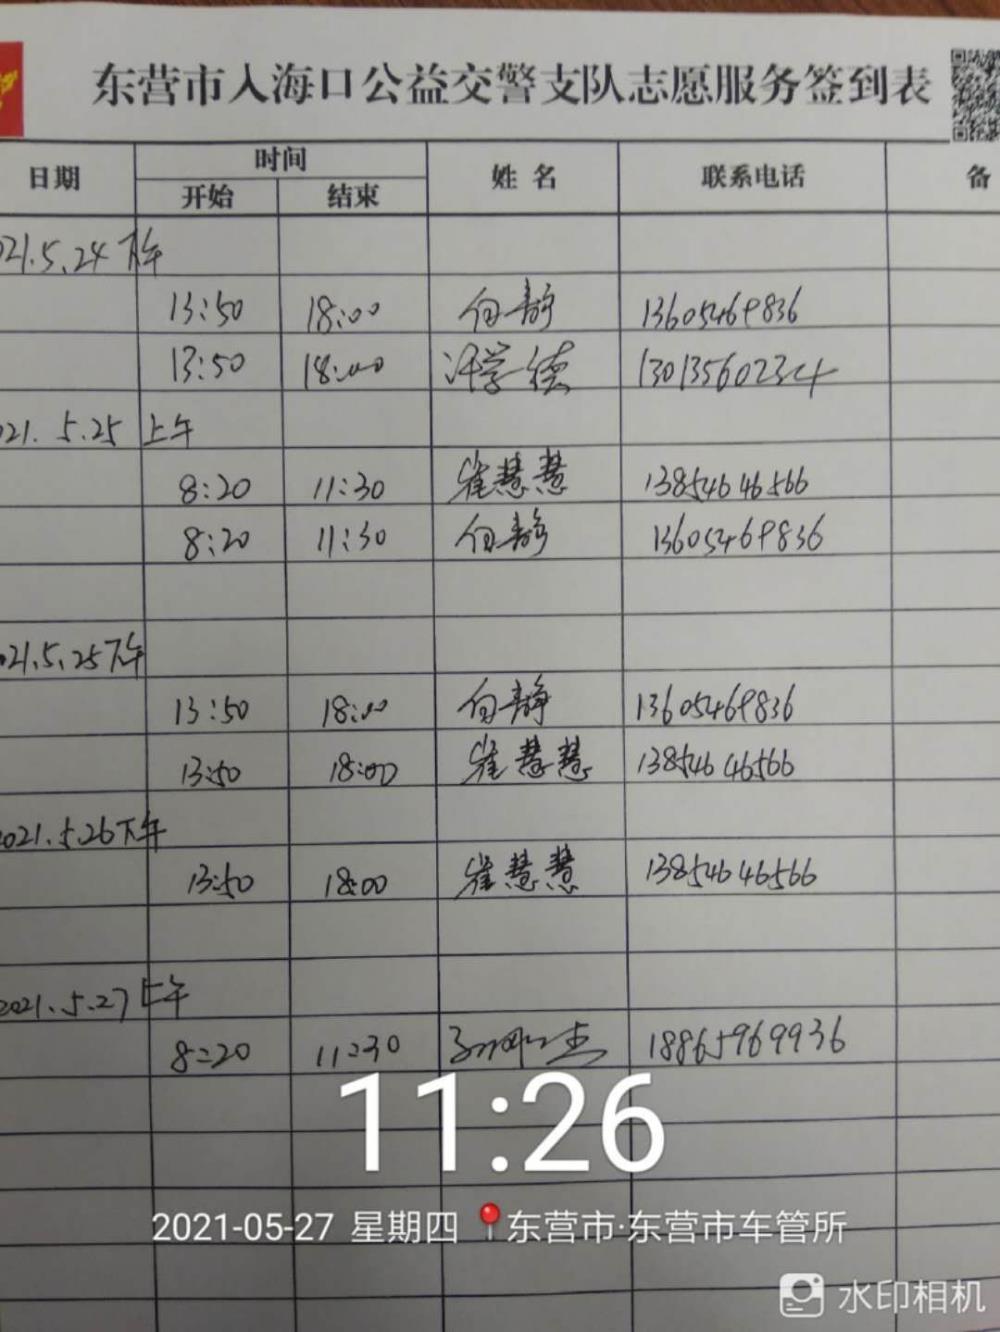 东营市入海口公益交警支队志愿服务签到表
日期 时间 姓 名 联系电话 备
开始 结束
021.5.24 下午
13:50 18:00 白静 13605469836
13:50 18:00 汗学德 13013560234
021. 5.25 上午
8:20 11:30 崔慧慧 13854646566
8:20 11:30 白静 13605469836
021.5.25下午
13:50 18:00 白静 13605469836
13:50 18:00 崔慧慧 13854646566
2021.5.26下午
13:50 18:00 崔慧慧 13854646566
2021.5.27 上午
8:20 11:30 18865969936
11:26
2021-05-27 星期四 东营市·东营市车管所
水印相机